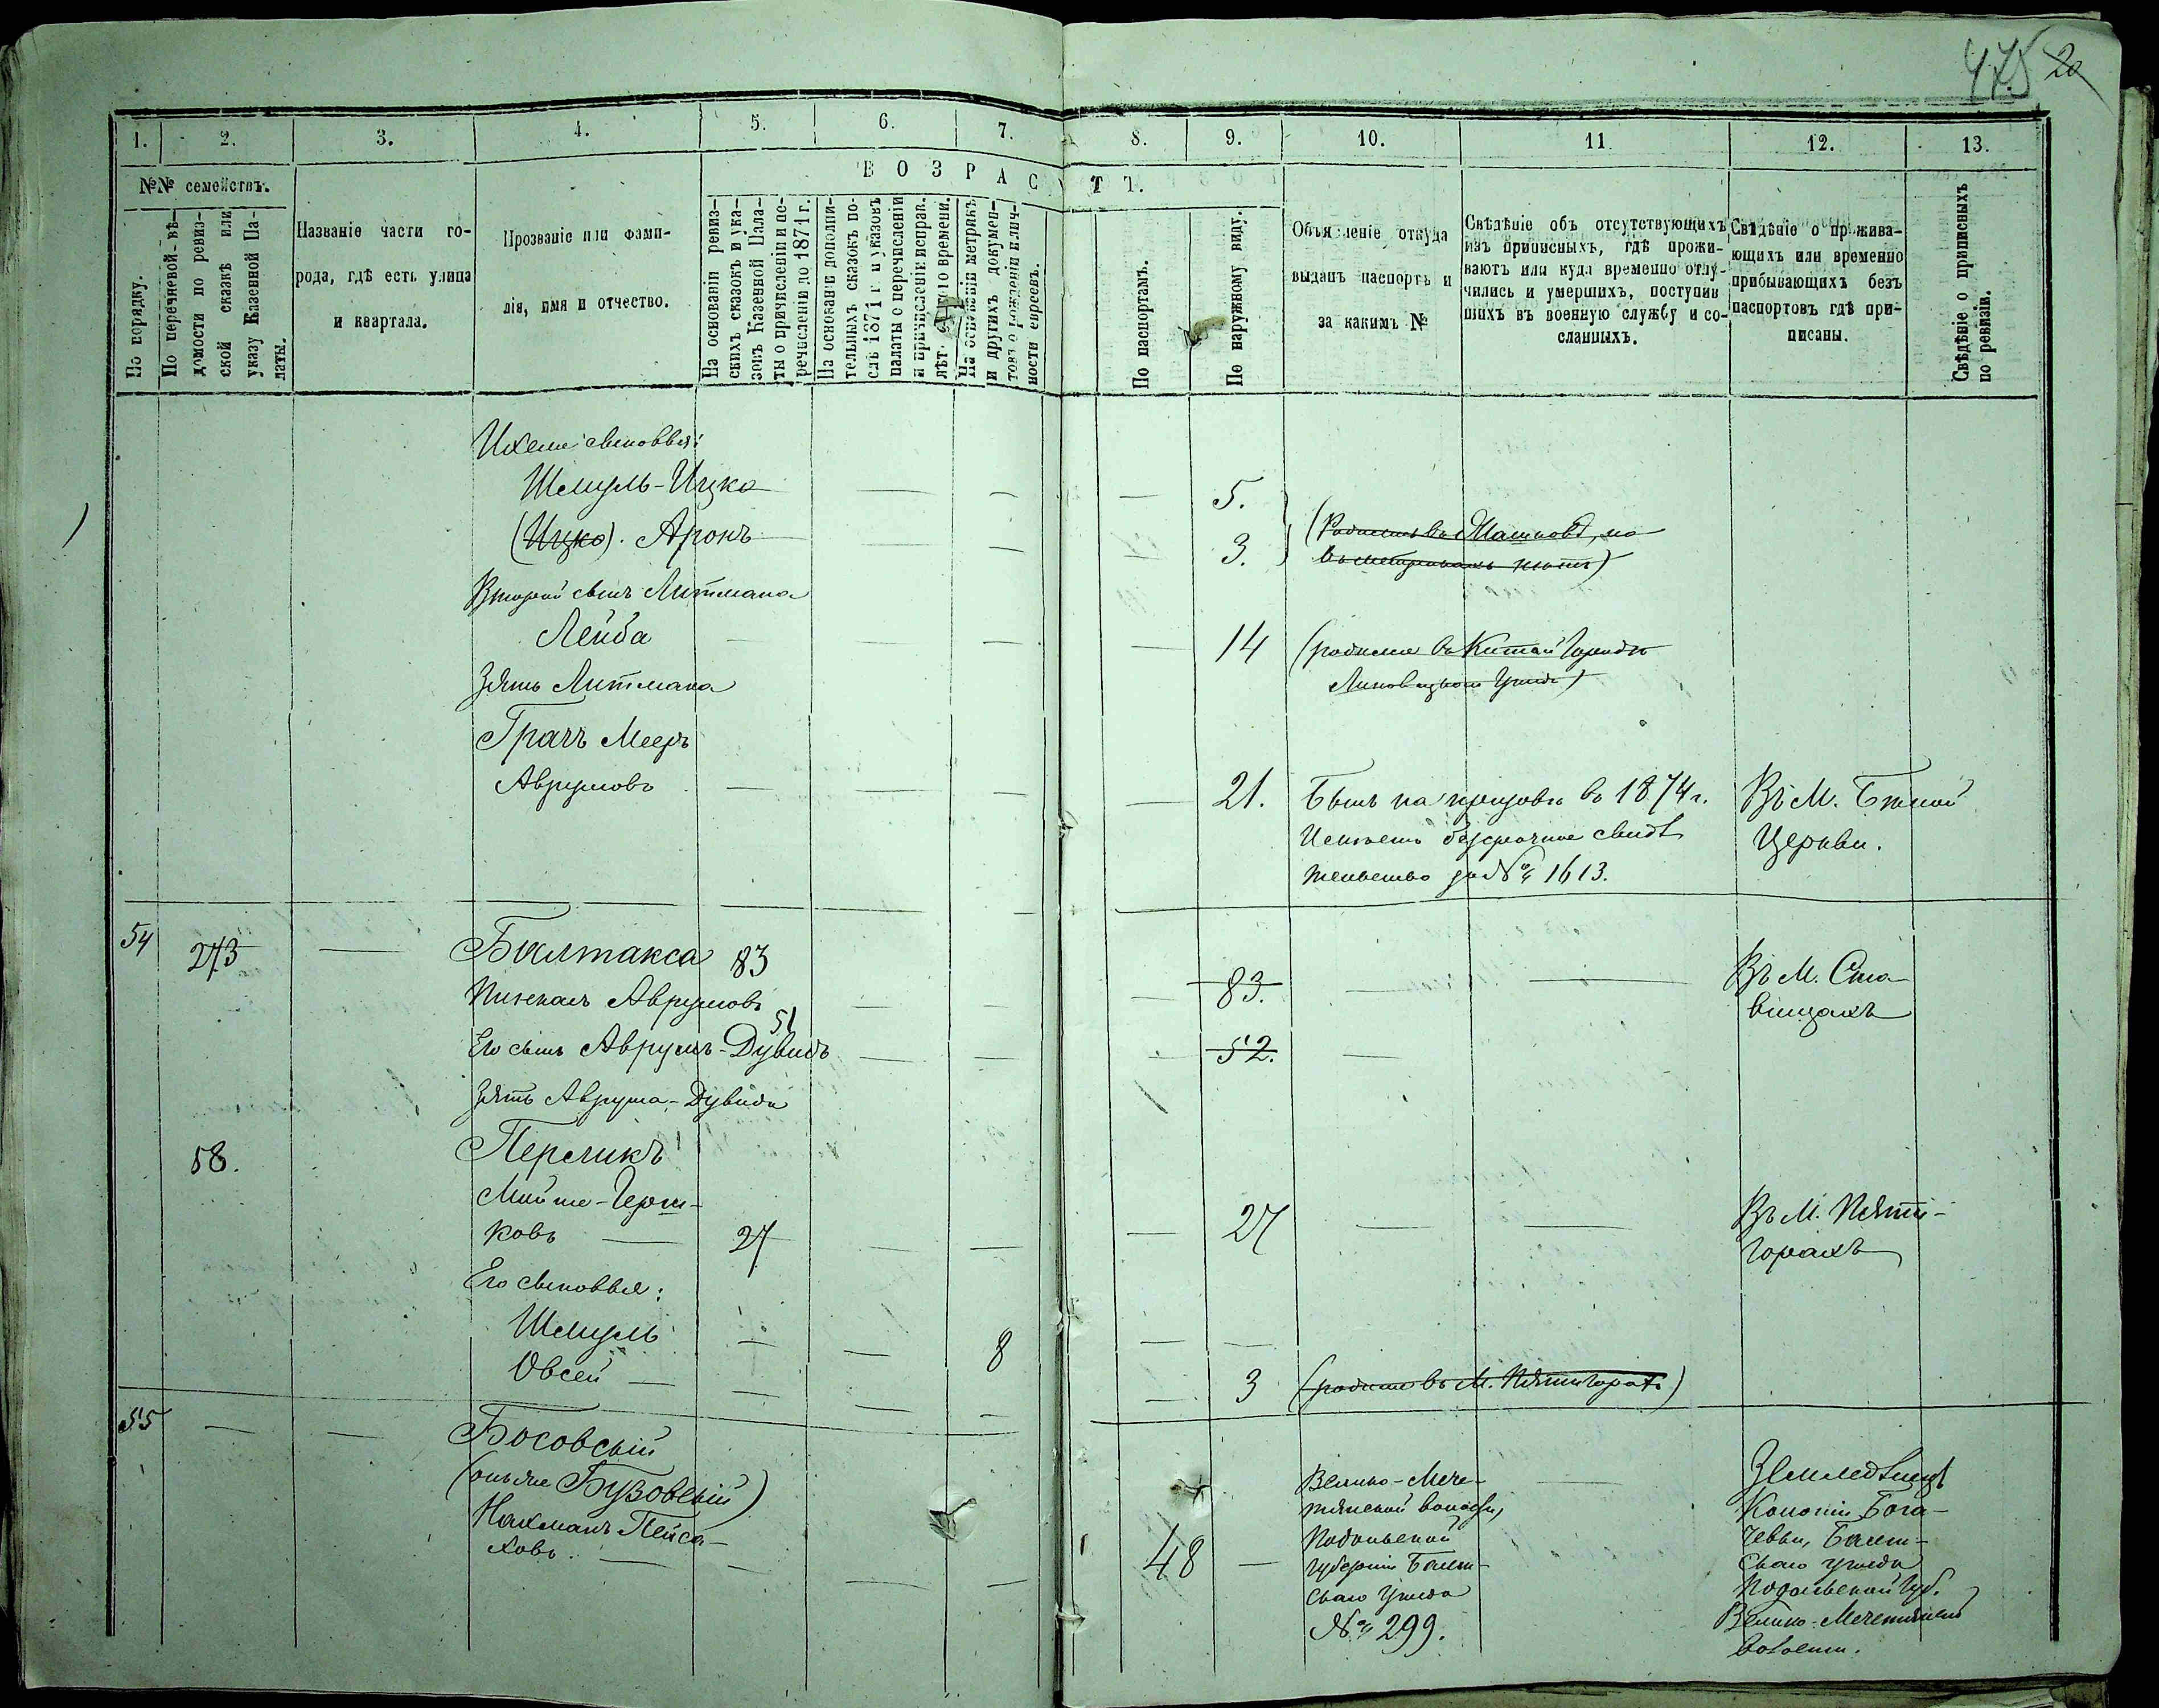 475 20
1. 2. 3. 4. 5. 6. 7. 8. 9. 10. 11 12. 13.
№№ семействъ.
В О З Р А С Т Т.
По порядку.
По перечневой вѣ-
домости по ревиз-
ской сказкѣ или
указу Казенной Па-
латы.
Названіе части го-
рода, гдѣ есть улица
и квартала.
Прозваніе или фами-
лія, имя и отчество.
На основаніи ревиз-
скихъ сказокъ и ука-
зовъ Казенной Пала-
ты о причисленіи и пе-
речисленіи до 1871 г.
На основаніи дополни-
тельныхъ сказокъ по-
слѣ 1871 г. и указовъ
палаты о перечисленіи
и причисленіи исправ.
лѣт. по времени.
На основаніи метрикъ
и другихъ докумен-
товъ о рожденіи и лич-
ности евреевъ.
По паспортамъ.
По наружному виду.
Объясненіе откуда
выданъ паспортъ и
за какимъ №
Свѣдѣніе объ отсутствующихъ
изъ приписныхъ, гдѣ прожи-
ваютъ или куда временно отлу-
чились и умершихъ, поступив
шихъ въ военную службу и со-
сланныхъ.
Свѣдѣніе о прожива-
ющихъ или временно
прибывающихъ безъ
паспортовъ гдѣ при-
писаны.
Свѣдѣніе о приписныхъ
по ревизіи.
сыновья:
Шмуль-Ицко — — — 5.
(Ицко). Аронъ — — 3. (Родились въ но
въ метрикахъ нѣтъ)
Второй сынъ Литмана
Лейба — — — — 14 (родился въ Китай Городѣ
уѣзда)
Зять Литмана
Грачъ Мееръ
Аврумовъ — — — — 21. Былъ на призывѣ въ 1874 г. Въ М. Бѣлой
безсрочное свидѣ Церкви.
тельство за № 1613.
54 273 — Балтакса 83
Пинхасъ Аврумовъ — — — 83. — — Въ М. Ста-
вищахъ
Его сынъ Аврумъ-Дувидъ 51 — — — 52. —
Зять Аврума-Дувида
58. Перликъ
Мойше-Герш-
ковъ — 27 — — — 27 — — Въ М. Пяти-
горахъ
Его сыновья:
Шмуль — — 8 — —
Овсей — — — — — 3 (родился въ М. Пятигорахъ)
55 — — Босовскій
(онъ же Бузовскій)
Нахманъ Пейса-
ховъ. — — — — 48 —
Велико-Мече-
тянской волости,
Подольской
губерніи Балт-
скаго уѣзда
№ 299.
—
Земледѣлецъ
Колоніи Бога-
чевки, Балт-
скаго уѣзда
Подольской губ.
Велико-Мечетянской
волости.